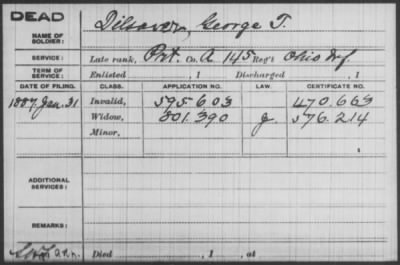 DEAD
NAME OF SOLDIER: Dilsaver, George T.
SERVICE: Late rank, Pvt. Co. A 145 Reg't Ohio Inf
TERM OF SERVICE: Enlisted , 1 Discharged , 1
DATE OF FILING. CLASS. APPLICATION NO. LAW. CERTIFICATE NO.
1887 Jan. 31 Invalid, 595.603 470.663
Widow, 801.390 g. 576.214
Minor,
ADDITIONAL SERVICES:
REMARKS:
Died , 1 , at